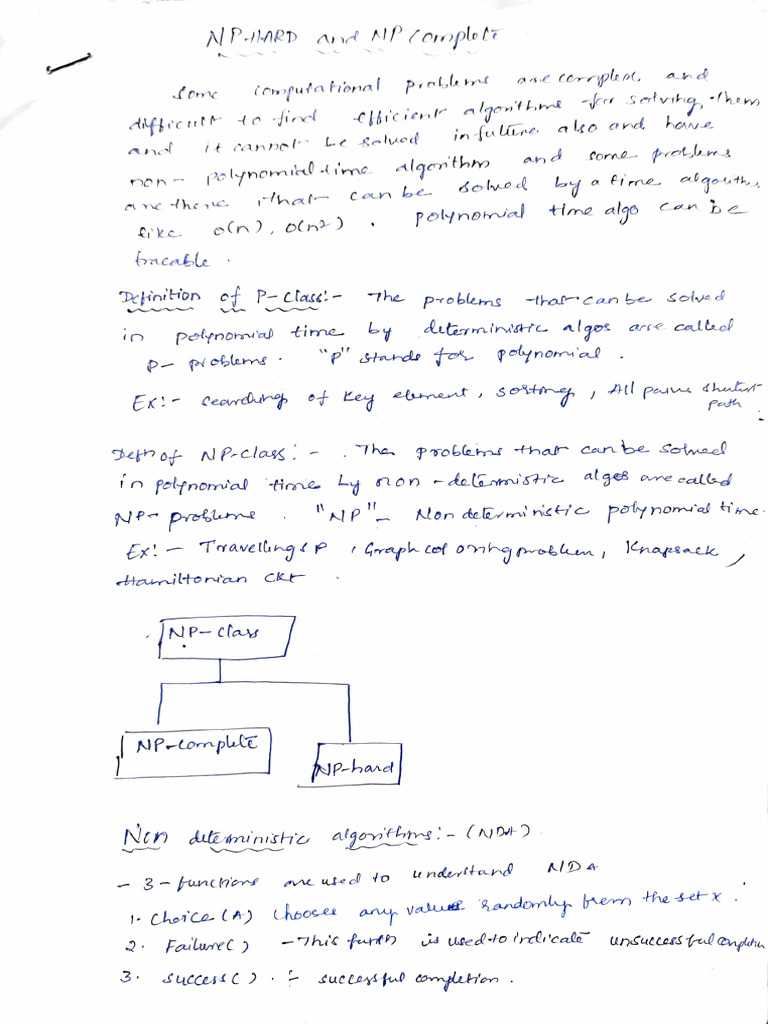 NP-HARD and NP Complete
Some computational problems are complex and
difficult to find efficient algorithms for solving them
and it cannot be solved in future also and have
non-polynomial time algorithm and some problems
are there that can be solved by a time algorithm
like O(n), O(n²). polynomial time algo can be
tracable.
Definition of P-Class:- The problems that can be solved
in polynomial time by deterministic algos are called
P- problems. "P" stands for polynomial.
Ex:- searching of key element, sorting, All pairs shortest
path
Defn of NP-class:- The problems that can be solved
in polynomial time by non-deterministic algos are called
NP- problems. "NP"- Non deterministic polynomial time.
Ex:- Travelling S P, Graph coloring problem, Knapsack,
Hamiltonian Ckt.
NP-class
NP-complete
NP-hard
Non deterministic algorithms:- (NDA)
- 3-functions are used to understand NDA
1. Choice (A) Chooses any value randomly from the set x.
2. Failure() - This funtn is used to indicate unsuccessful completion
3. success(). :- successful completion.